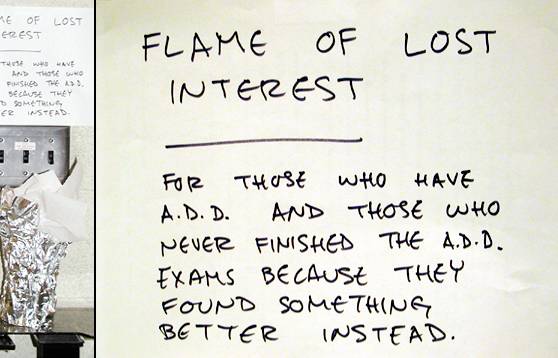 ME OF LOST
EREST
THOSE WHO HAVE
AND THOSE WHO
FINISHED THE A.D.D.
BECAUSE THEY
D SOMETHING
ER INSTEAD.
FLAME OF LOST
INTEREST
FOR THOSE WHO HAVE
A.D.D. AND THOSE WHO
NEVER FINISHED THE A.D.D.
EXAMS BECAUSE THEY
FOUND SOMETHING
BETTER INSTEAD.